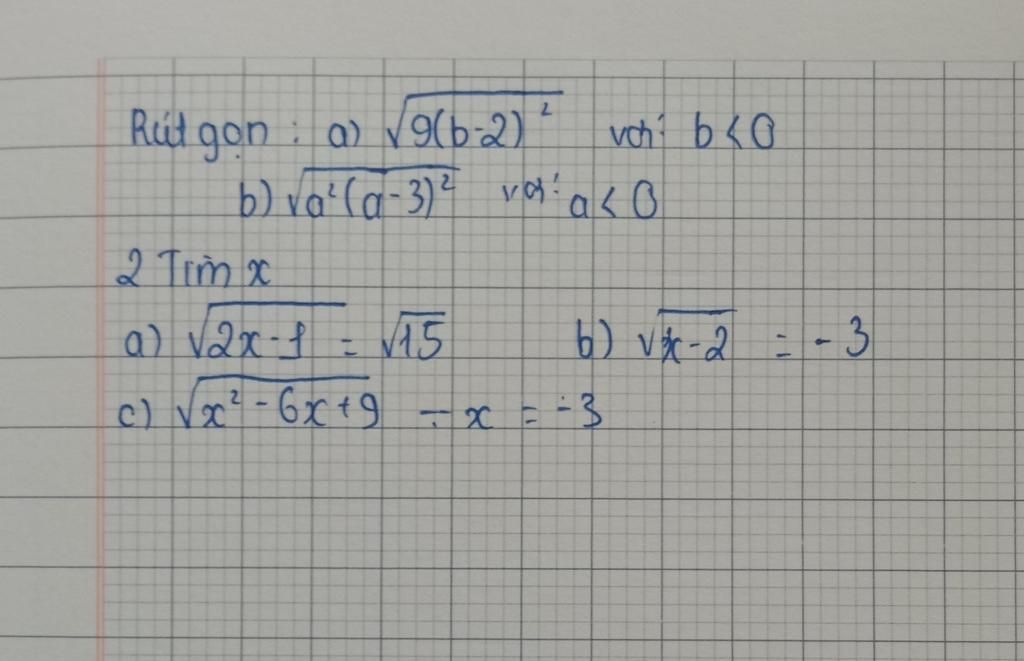 Rút gọn : a) √9(b-2)² với b < 0
b) √a²(a-3)² với a < 0
2 Tìm x
a) √2x-1 = √15 b) √x-2 = -3
c) √x²-6x+9 - x = -3